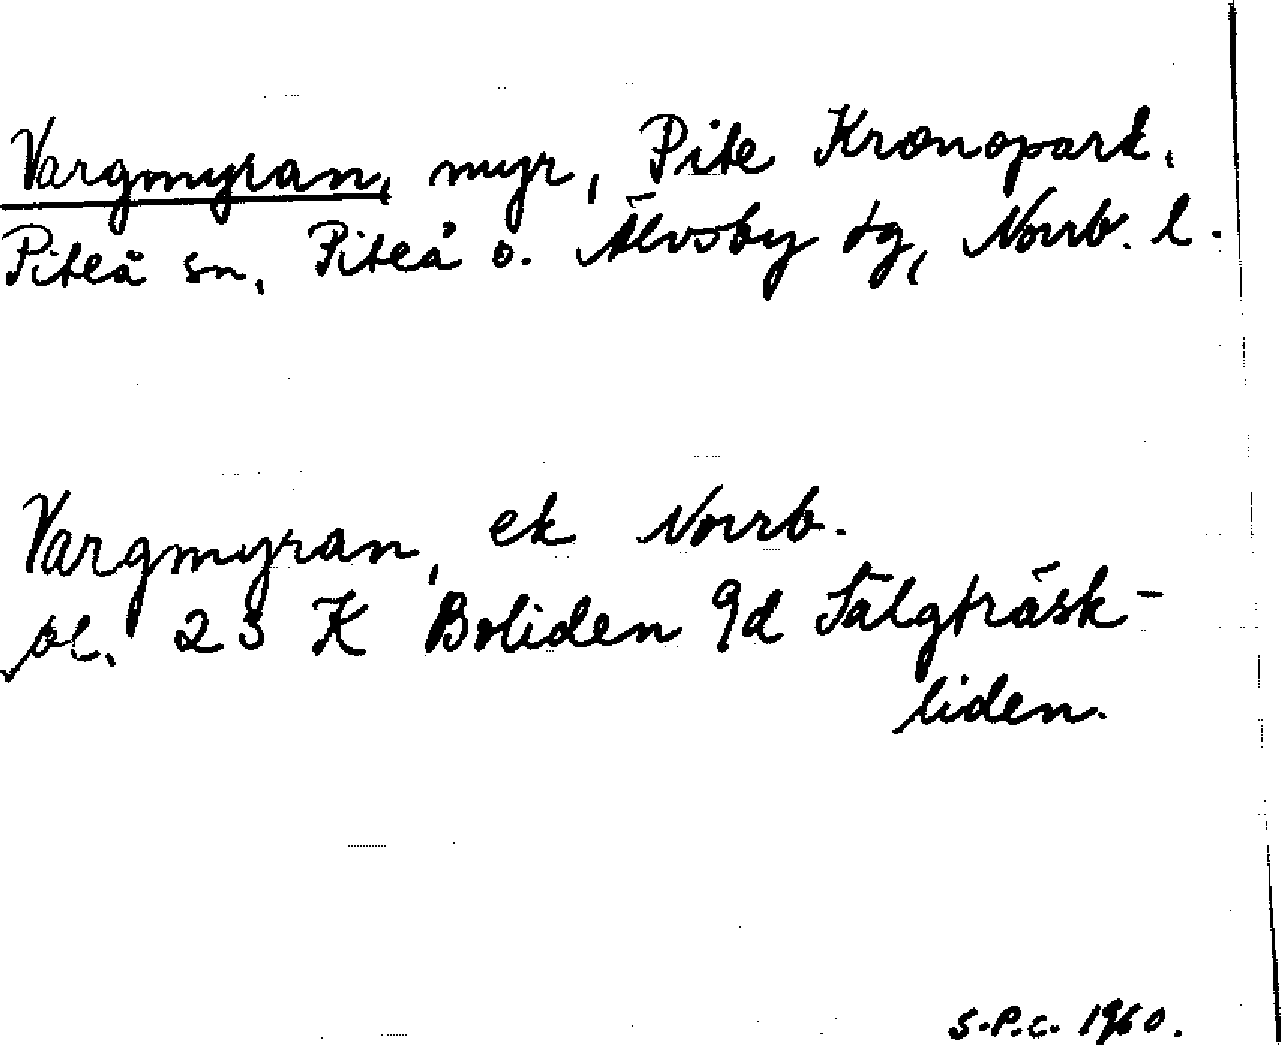 Vargmyran, myr, Pite Kronopark,
Piteå sn, Piteå o. Älvsby tg, Norrb. l.
Vargmyran, ek Norrb.
bl. 23 K Boliden 9d Sälgträsk-
liden.
S.P.C. 1960.